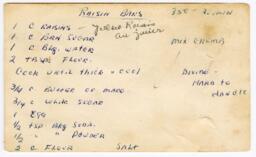 RAISIN BARS 350 - 30 MIN
1 C RAISINS - Yellow Raisins
1 C BRN SUGAR MIX CREAMY
1 C BLG. WATER
2 TBSP FLOUR
COOK UNTIL THICK & COOL DIVIDE -
3/4 C BUTTER OR MARG HARD TO
3/4 C WHITE SUGAR HANDLE
1 EGG
1/2 TSP BKG SODA.
1/2 " " POWDER
2 C FLOUR SALT